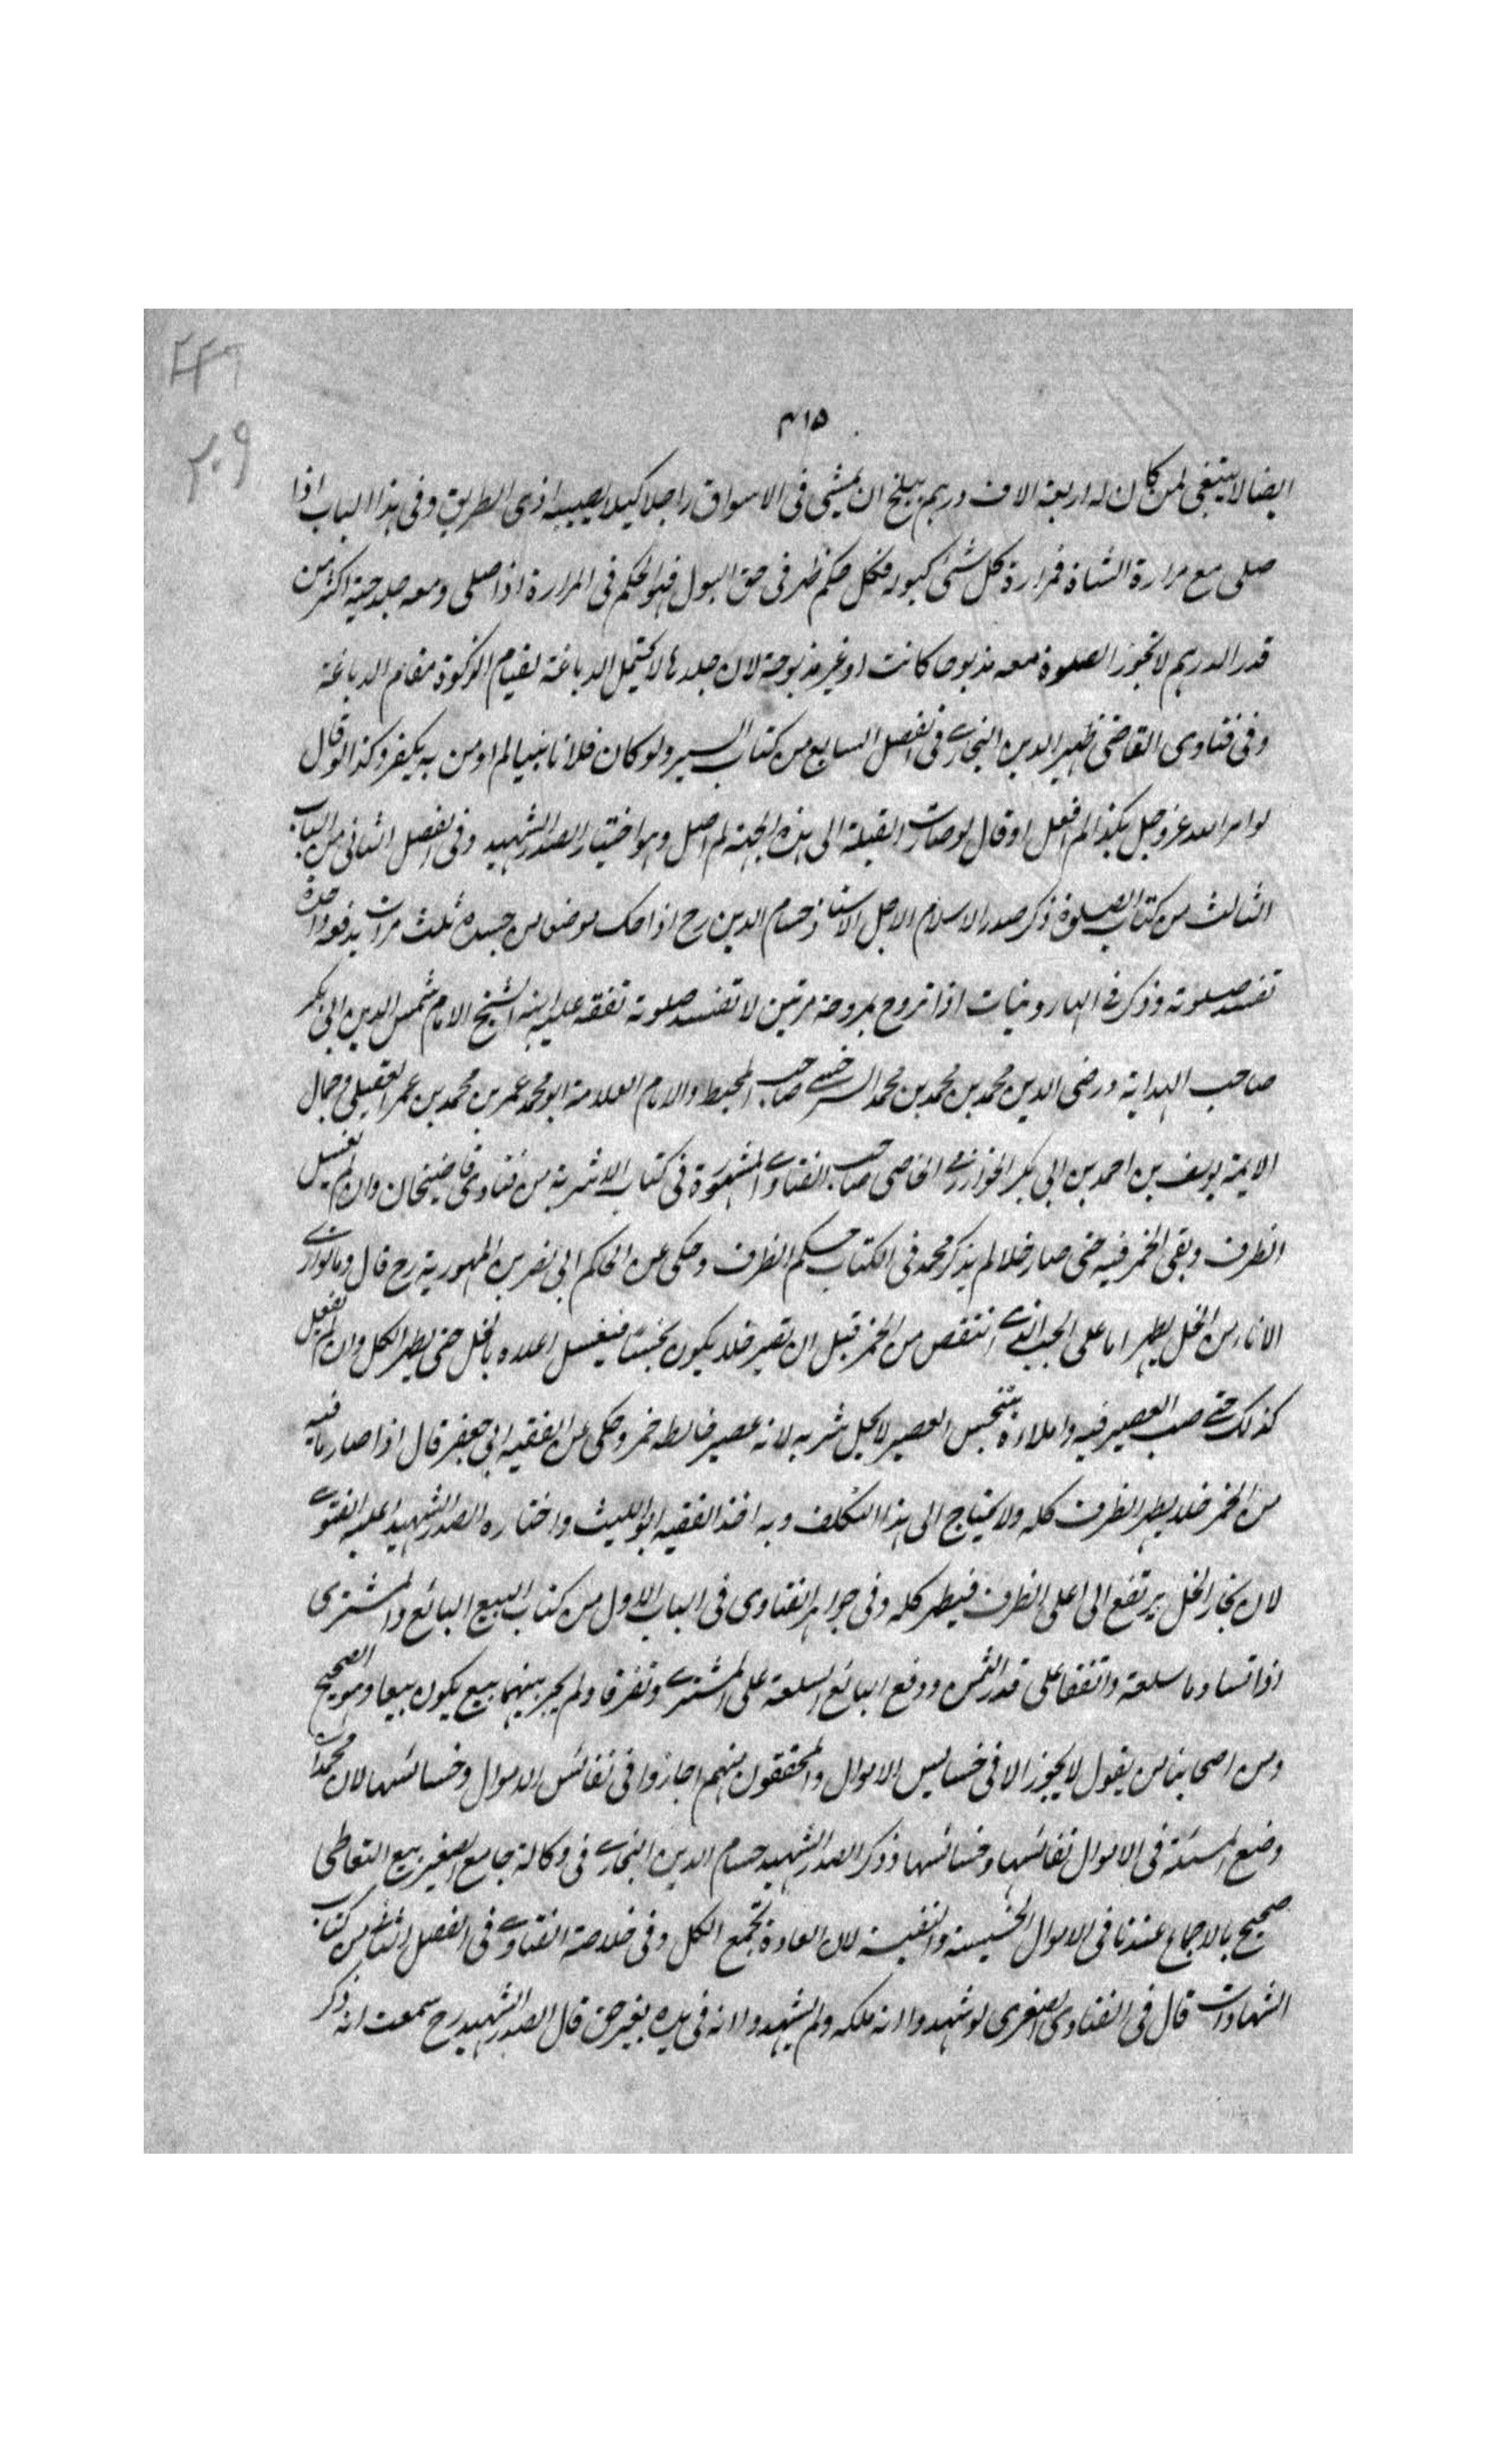 ٢٢٦
٢٠٩
٣١٥
ايضا لا ينبغي لمن كان له اربعة الاف درهم ببلخ ان يمشي في الاسواق راجلا كيلا يصيبه اذى الطريق وفي هذا الباب اذا
صلى مع مرارة الشاة فمرارة كل شئ كبوله فكل حكم ظهر في حق البول فهو الحكم في المرارة اذا صلى ومعه جلد حية اكثر من
قدر الدرهم لا تجوز الصلوة معه مذبوحا كانت او غير مذبوحة لان جلدها لا يحتمل الدباغة لقيام الزكوة مقام الدباغة
وفي فتاوى القاضي ظهير الدين البخاري في الفصل السابع من كتاب السير ولو كان فلانا نبيا لم اومن به يكفر وكذا لو قال
لو امر الله عز وجل بكذا لم افعل او قال لو صارت القبلة الى هذه الجهة لم اصل وهو اختيار الصدر الشهيد وفي الفصل الثاني من الباب
الثالث من كتاب الصلوة ذكر صدر الاسلام الاجل الاستاذ حسام الدين رح اذا حك موضعا من جسده ثلث مرات بدفعة واحدة
تفسد صلوته وذكر في الهارونيات اذا تروح بمروحة مرتين لا تفسد صلوته تفقه عليه ابنه الشيخ الامام شمس الدين ابي بكر
صاحب الهداية ورضى الدين محمد بن محمد بن محمد السرخسي صاحب المحيط والامام العلامة ابو محمد عمر بن محمد بن عمر العقيلي وجمال
الايمة يوسف بن احمد بن ابي بكر الخوارزمي الخاصي صاحب الفتاوى المشهورة في كتاب الاشربة من فتاوى قاضيخان وان لم يغسل
الظرف وبقى الخمر فيه حتى صار خلا لم يذكر محمد في الكتاب حكم الظرف وحكى عن الحاكم ابي نصر بن المهروية رح قال وما توازي
الاناء من الخل يطهر اما على الحب الذي انتقص من الخمر قبل ان تصير خلا يكون نجسا فيغسل اعلاه بالخل حتى يطهر الكل وان لم يفعل
كذلك حتى صب العصير فيه واملاءه يتنجس العصير لا يحل شربه لانه عصير خالطه خمر وحكى عن الفقيه ابي جعفر قال اذا صار ما فيه
من الخمر خلا يطهر الظرف كله ولا يحتاج الى هذا التكلف وبه اخذ الفقيه ابو الليث واختاره الصدر الشهيد عليه الفتوى
لان بخار الخل يرتفع الى اعلى الظرف فيطهر كله وفي جواهر الفتاوى في الباب الاول من كتاب البيع البائع والمشترى
اذا تساوما سلعة واتفقا على قدر الثمن ودفع البائع السلعة على المشتري وتفرقا ولم يجر بينهما بيع يكون بيعا وهو الصحيح
ومن اصحابنا من يقول لا يجوز الا في خسايس الاموال والمحققون منهم اجازوا في نفائس الاموال وخسائسها لان محمدا
وضع المسئلة في الاموال نفائسها وخسائسها وذكر الصدر الشهيد حسام الدين البخاري في وكالة جامع الصغير بيع التعاطى
صحيح بالاجماع عندنا في الاموال الخسيسة والنفيسة لان العادة تجمع الكل وفي خلاصة الفتاوى في الفصل الثالث من كتاب
الشهادات قال في الفتاوى الصغرى لو شهدوا انه ملكه ولم يشهدوا انه في يده بغير حق قال الصدر الشهيد رح سمعت انه ذكر